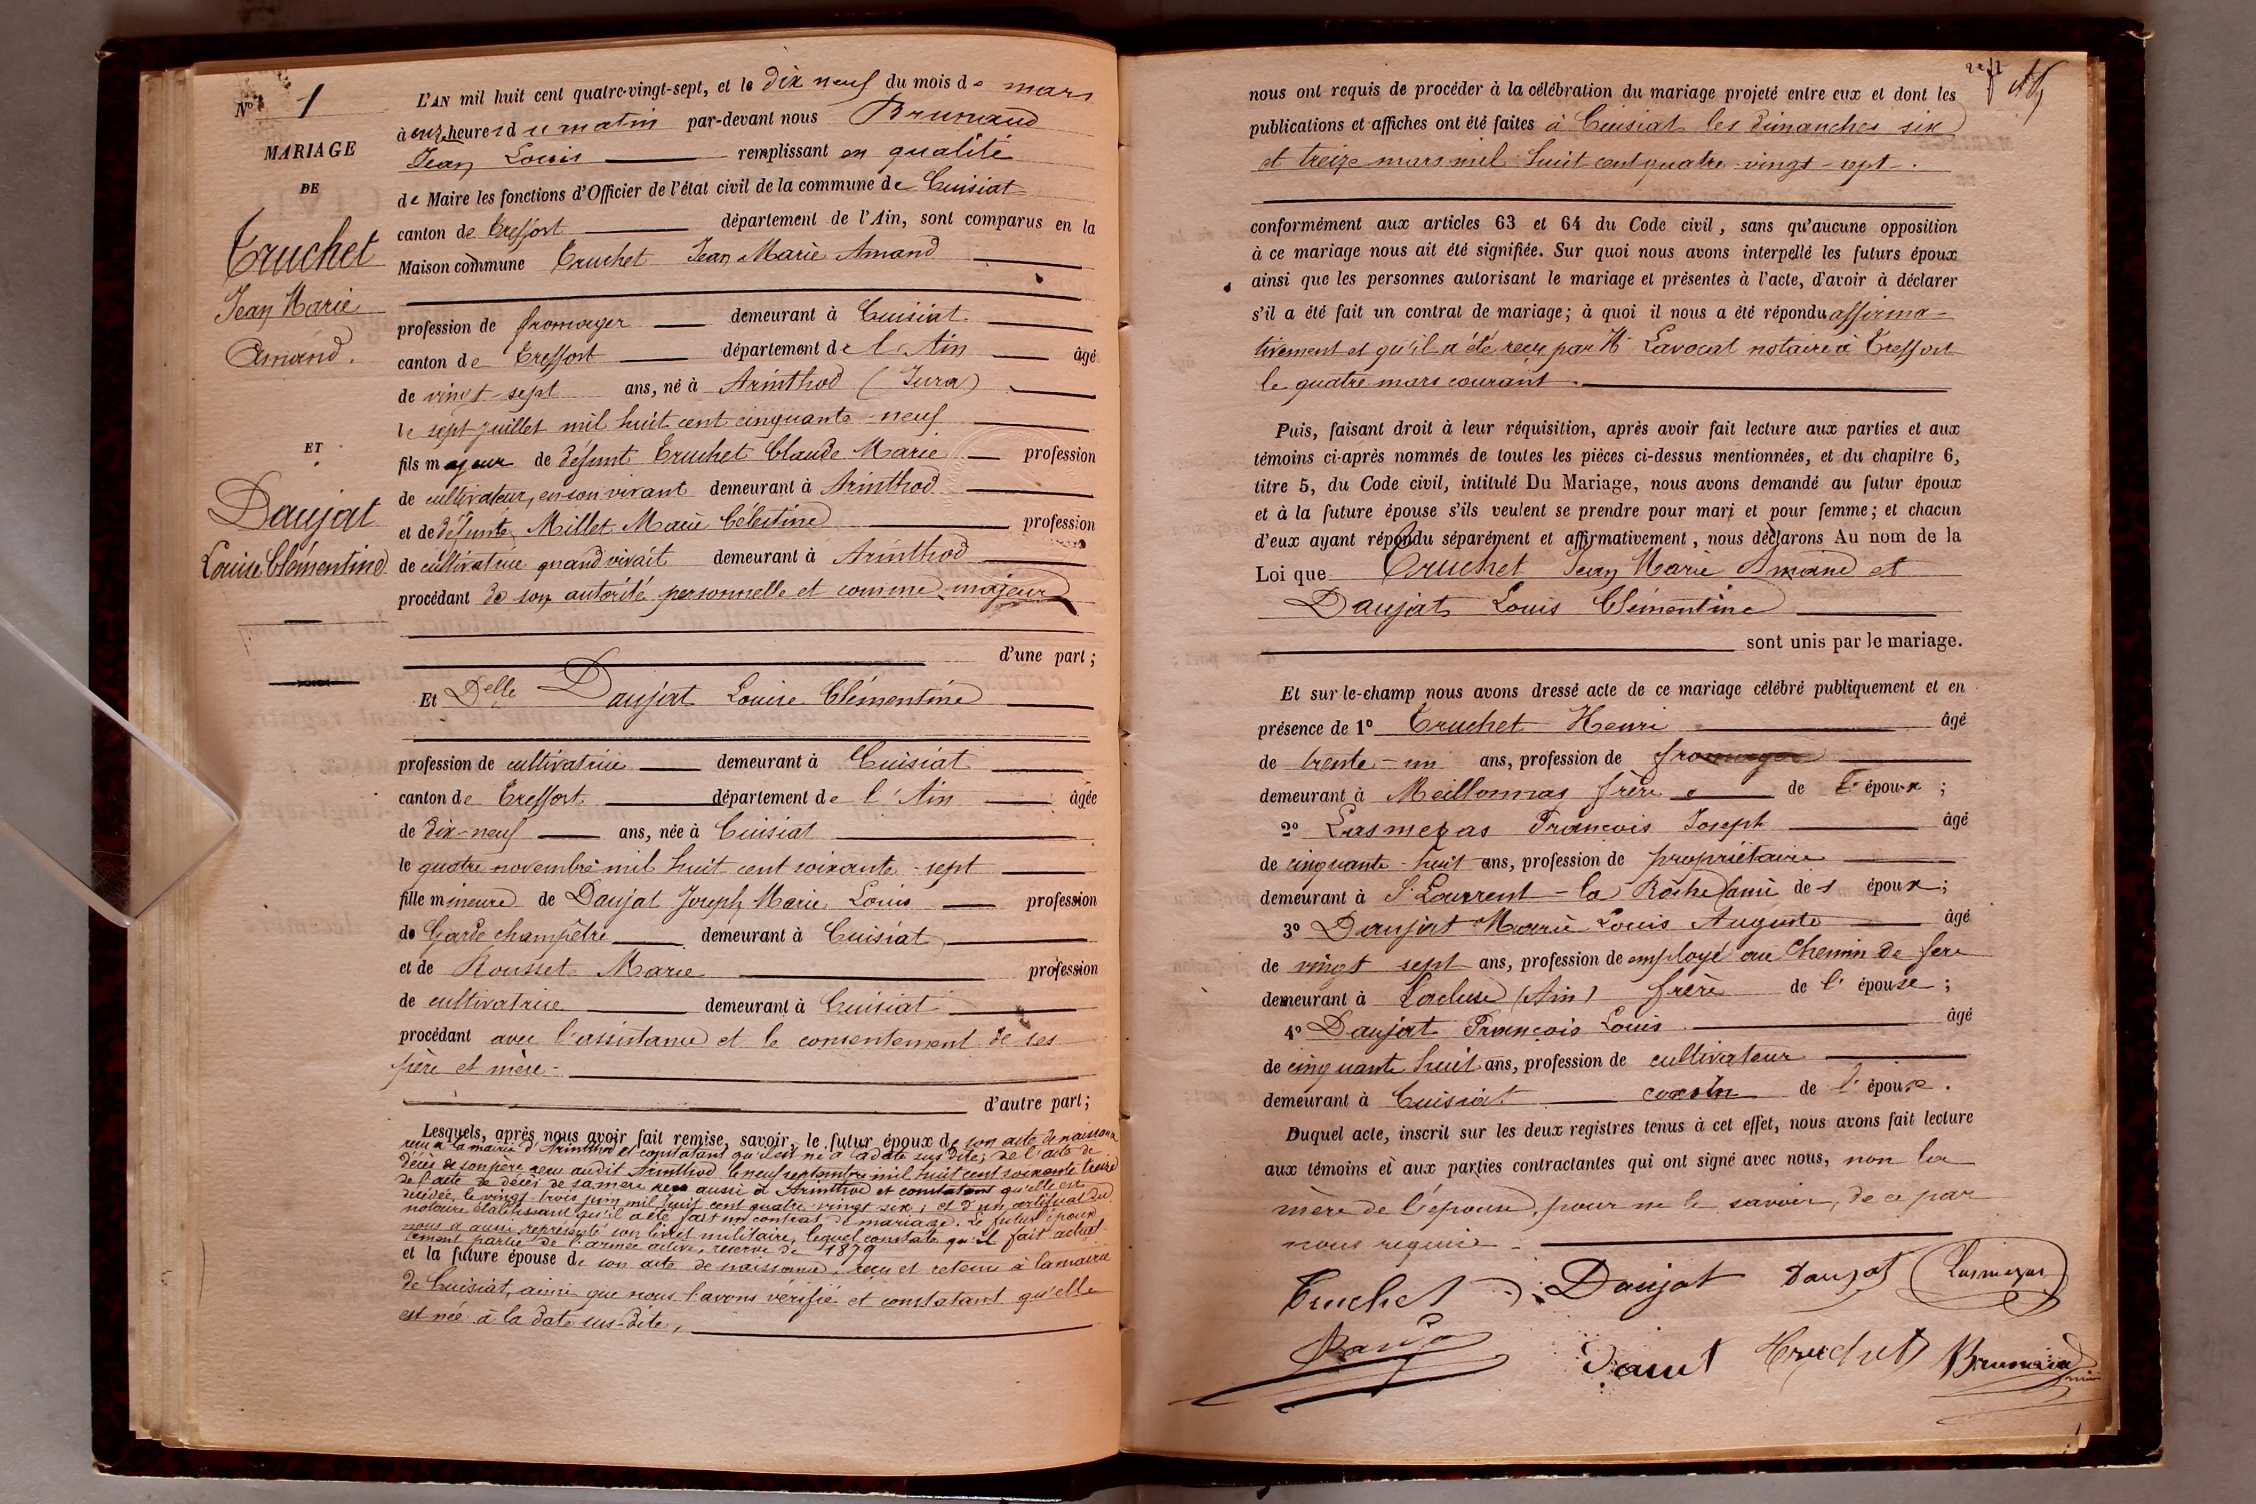 N° 1
MARIAGE
DE
Truchet
Jean Marie
Amand.
ET
Daujat
Louise Clémentine
L'AN mil huit cent quatre-vingt-sept, et le dix neuf du mois de mars
à onze heures du matin par-devant nous Brunaud
Jean Louis remplissant en qualité
de Maire les fonctions d'Officier de l'état civil de la commune de Cuisiat
canton de Treffort département de l'Ain, sont comparus en la
Maison commune Truchet Jean Marie Amand
profession de fromager demeurant à Cuisiat
canton de Treffort département de l'Ain âgé
de vingt-sept ans, né à Arinthod (Jura)
le sept juillet mil huit cent cinquante-neuf
fils majeur de défunt Truchet Claude Marie profession
de cultivateur, en son vivant demeurant à Arinthod
et de défunte Millet Marie Célestine profession
de cultivatrice quand vivait demeurant à Arinthod
procédant de son autorité personnelle et comme majeur
d'une part ;
Et Delle Daujat Louise Clémentine
profession de cultivatrice demeurant à Cuisiat
canton de Treffort département de l'Ain âgée
de dix-neuf ans, née à Cuisiat
le quatre novembre mil huit cent soixante-sept
fille mineure de Daujat Joseph Marie Louis profession
de Garde champêtre demeurant à Cuisiat
et de Rousset Marie profession
de cultivatrice demeurant à Cuisiat
procédant avec l'assistance et le consentement de ses
père et mère -
d'autre part ;
Lesquels, après nous avoir fait remise, savoir, le futur époux de son acte de naissance
reçu à la mairie d'Arinthod et constatant qu'il est né à la date sus dite; de l'acte de
décès de son père reçu audit Arinthod le neuf septembre mil huit cent soixante treize
de l'acte de décès de sa mère reçu aussi à Arinthod et constatant qu'elle est
décédée le vingt trois juin mil huit cent quatre-vingt six; et d'un certificat du
notaire établissant qu'il a été fait un contrat de mariage. Le futur époux
nous a aussi représenté son livret militaire, lequel constate qu'il fait actuel-
lement partie de l'armée active, réserve de 1879
et la future épouse de son acte de naissance, reçu et retenu à la mairie
de Cuisiat, ainsi que nous l'avons vérifié et constatant qu'elle
est née à la date sus-dite,
nous ont requis de procéder à la célébration du mariage projeté entre eux et dont les
publications et affiches ont été faites à Cuisiat les dimanches six
et treize mars mil huit cent quatre-vingt-sept.
conformément aux articles 63 et 64 du Code civil, sans qu'aucune opposition
à ce mariage nous ait été signifiée. Sur quoi nous avons interpellé les futurs époux
ainsi que les personnes autorisant le mariage et présentes à l'acte, d'avoir à déclarer
s'il a été fait un contrat de mariage; à quoi il nous a été répondu affirma-
tivement et qu'il a été reçu par Me Lavocat notaire à Treffort
le quatre mars courant.
Puis, faisant droit à leur réquisition, après avoir fait lecture aux parties et aux
témoins ci-après nommés de toutes les pièces ci-dessus mentionnées, et du chapitre 6,
titre 5, du Code civil, intitulé Du Mariage, nous avons demandé au futur époux
et à la future épouse s'ils veulent se prendre pour mari et pour femme; et chacun
d'eux ayant répondu séparément et affirmativement, nous déclarons Au nom de la
Loi que Truchet Jean Marie Amand et
Daujat Louis Clémentine
sont unis par le mariage.
Et sur-le-champ nous avons dressé acte de ce mariage célébré publiquement et en
présence de 1° Truchet Henri âgé
de trente-un ans, profession de fromager
demeurant à Meillonnas frère de l'époux ;
2° Lasmezas François Joseph âgé
de cinquante-huit ans, profession de propriétaire
demeurant à St Laurent-la Roche (ami des époux ;
3° Daujat Marie Louis Auguste âgé
de vingt sept ans, profession de employé au chemin de fer
demeurant à (Ain) frère de l'épouse ;
4° Daujat François Louis âgé
de cinquante huit ans, profession de cultivateur
demeurant à Cuisiat cousin de l'épouse.
Duquel acte, inscrit sur les deux registres tenus à cet effet, nous avons fait lecture
aux témoins et aux parties contractantes qui ont signé avec nous, non la
mère de l'épouse, pour ne le savoir, de ce par
nous requise -
Truchet Daujat Daujat Lasmezas
Daujat Truchet Brunaud